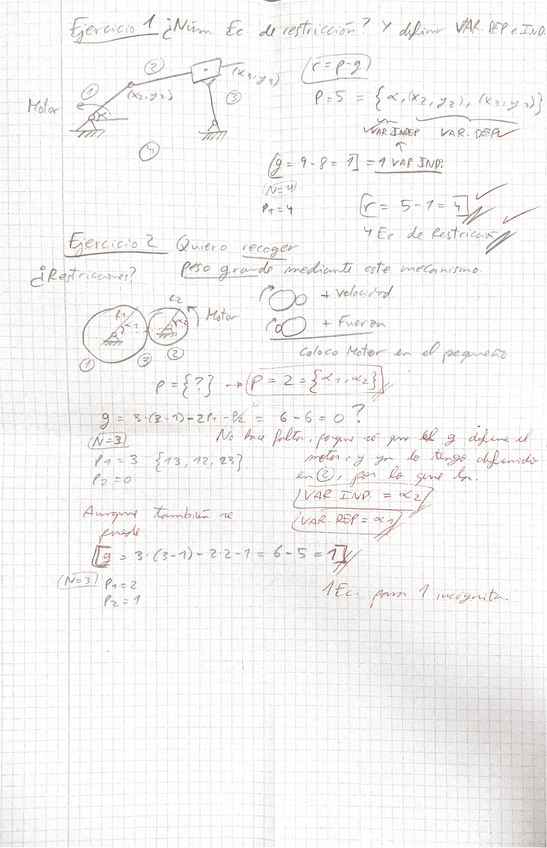 Ejercicio 1 ¿Núm Ec de restricción? Y definir VAR. DEP e IND.
r = p-g
② (x3,y3)
① (x2,y2) ③
Motor α
④
P=5 = {α,(x2,y2), (x3,y3)}
VAR INDEP VAR. DEP
g = 9-8 = 1 = 1 VAR IND.
N=4
P1=4
r = 5-1 = 4
4 Ec de Restricción
Ejercicio 2 Quiero recoger
peso grande mediante este mecanismo.
¿Restricciones?
+ Velocidad
+ Fuerza
Coloco Motor en el pequeño
R1 α1 R2 α2 Motor
① ③ ②
P = {?} → P = 2 = {α1, α2}
g = 3·(3-1)-2P1-P2 = 6-6 = 0 ?
N=3
P1 = 3 {13, 12, 23}
P2 = 0
No hace falta, porque sé que el g define el
motor, y ya lo tengo definido
en ②, por lo que
VAR IND. = α2
VAR. DEP = α1
Aunque también se
puede
g = 3·(3-1)-2·2-1 = 6-5 = 1
N=3
P1=2
P2=1
1 Ec. para 1 incógnita.